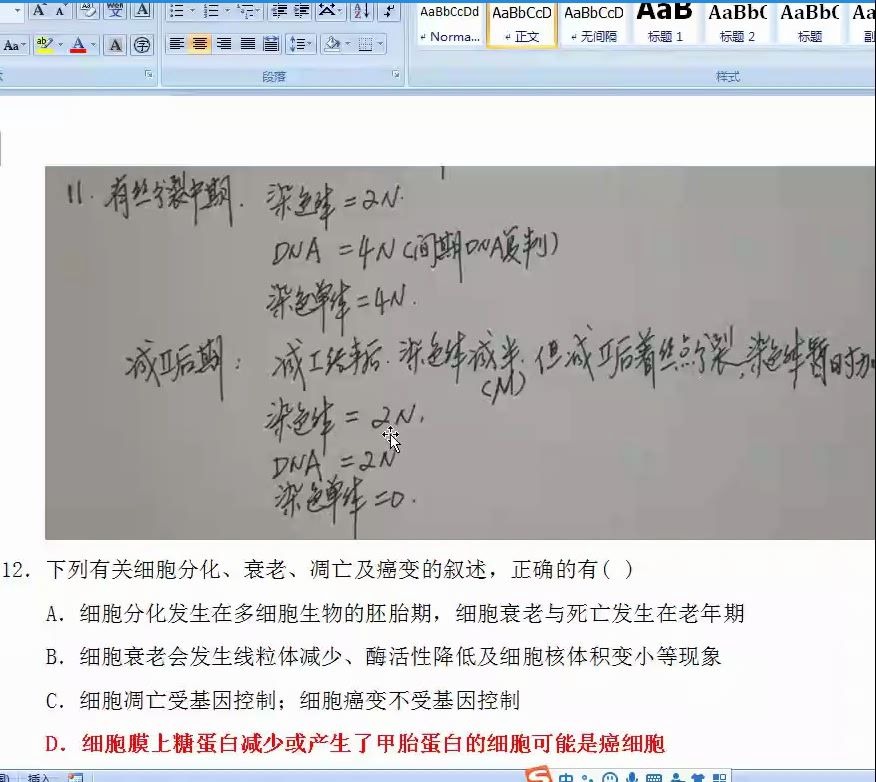 AaBbCcDd AaBbCcD AaBbCcD AaB AaBb( AaBb( Aa
Norma... 正文 无间隔 标题 1 标题 2 标题 副
段落 样式
11. 有丝分裂中期. 染色体 = 2N.
DNA = 4N (间期DNA复制)
染色单体 = 4N.
减II后期: 减I结束后. 染色体减半. 但减II后着丝点分裂, 染色体暂时加
(N)
染色体 = 2N.
DNA = 2N
染色单体 = 0.
12. 下列有关细胞分化、衰老、凋亡及癌变的叙述，正确的有( )
A. 细胞分化发生在多细胞生物的胚胎期，细胞衰老与死亡发生在老年期
B. 细胞衰老会发生线粒体减少、酶活性降低及细胞核体积变小等现象
C. 细胞凋亡受基因控制；细胞癌变不受基因控制
D. 细胞膜上糖蛋白减少或产生了甲胎蛋白的细胞可能是癌细胞
插入 中